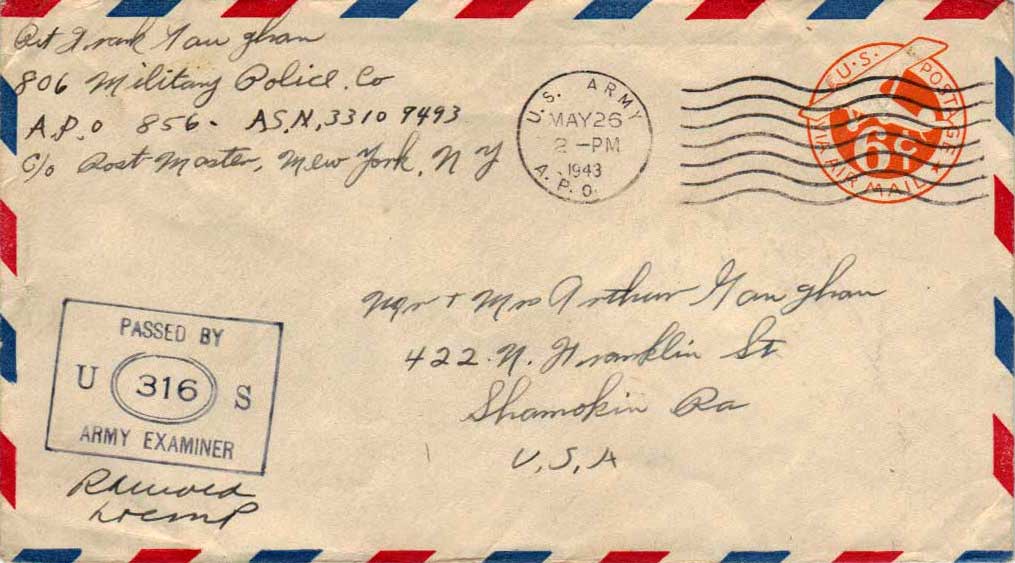 Pvt Frank Gaughan
806 Military Police. Co
A.P.O 856- ASN, 33107493
c/o Post Master, New York, N Y
U.S. ARMY
MAY 26
2 -PM
1943
A.P.O.
U.S. POSTAGE
6¢
VIA AIR MAIL
Mr + Mrs Arthur Gaughan
422 N. Franklin St
Shamokin Pa
U.S,A
PASSED BY
U 316 S
ARMY EXAMINER